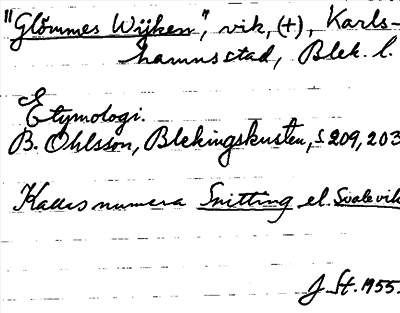 "Glömmes Wijken", vik, (+), Karls-
hamns stad, Blek. l.
Etymologi.
B. Ohlsson, Blekingskusten, s 209, 203
Kallas numera Snitting el. Svalevik
J. St. 1955.